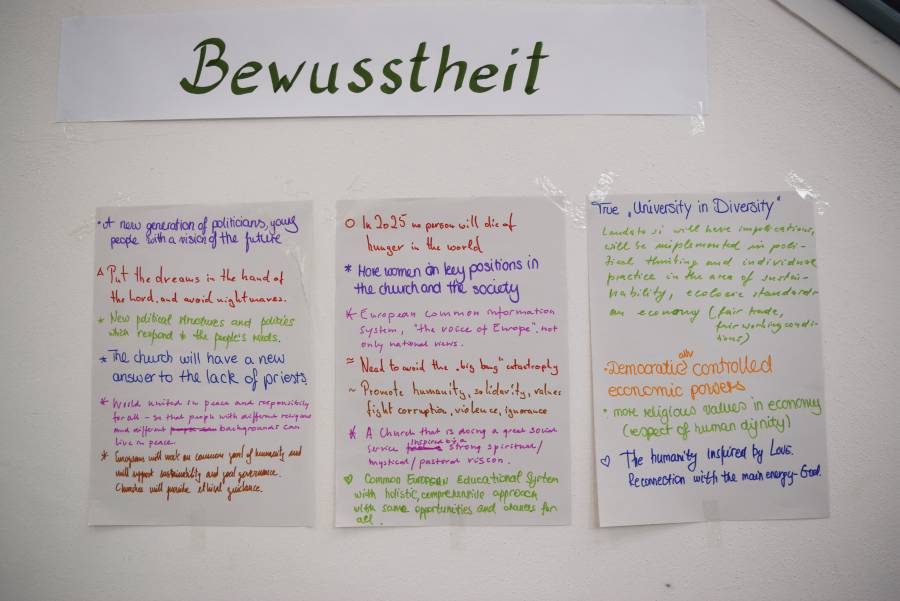 Bewusstheit
• A new generation of politicians, young
people with a vision of the future
△ Put the dreams in the hand of
the Lord. and avoid nightmares.
* New political structures and policies
which respond to the people's needs.
* The church will have a new
answer to the lack of priests.
* World united in peace and responsibility
for all - so that people with different religions
and different backgrounds can
live in peace.
* Europeans will work on common goal of humanity and
will support sustainability and good governance.
Churches will provide ethical guidance.
O In 2025 no person will die of
hunger in the world
* More women on key positions in
the church and the society
* European common information
system, "the voice of Europe", not
only national views.
≈ Need to avoid the „big bang" catastrophy
~ Promote humanity, solidarity, values
fight corruption, violence, ignorance
* A Church that is doing a great social
service inspired by a strong spiritual/
mystical/pastoral vision.
♡ Common EUROPEAN Educational System
with holistic, comprehensive approach
with same opportunities and chances for
all.
True „University in Diversity"
Laudato si will have implications,
will be implemented in poli-
tical thinking and individual
practice in the area of sustai-
nability, ecologic standards
an economy (fair trade,
fair working condi-
tions)
• Democratically controlled
economic powers
• more religious values in economy
(respect of human dignity)
♡ The humanity inspired by Love.
Reconnection with the main energy - God.